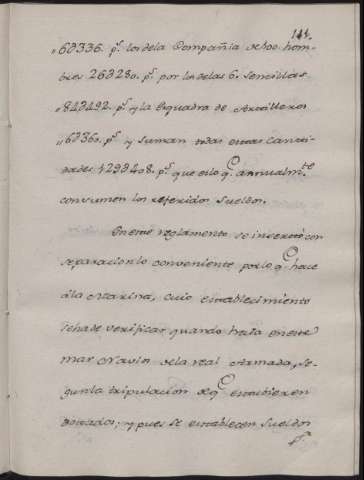 144.
" 6∂336. p.s los dela Compañia de 100. hom-
bres 26∂280. p.s por los delas 6. Sencillas
" 84∂492. p.s y la Esquadra de Artilleros
" 6∂360. p.s y suman todas estas Canti-
dades 429∂408. p.s que es lo q.e annualm.te
consumen los referidos Sueldos.
En este reglamento se insertò con
separacion lo conveniente por lo q.e hace
à la Marina, cuio establecimiento
se ha de verificar quando haia en este
mar Navios de la real Armada, se-
gun la tripulacion de q.e estubieren
dotados; y pues se establecen Sueldos